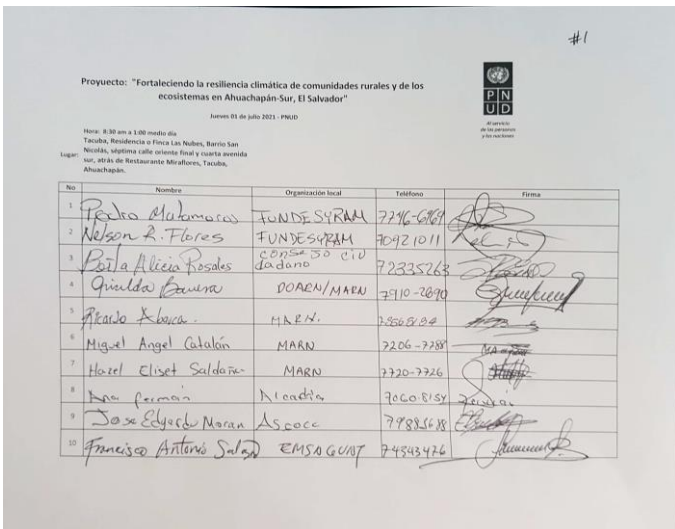 #1
Proyucto: "Fortaleciendo la resiliencia climática de comunidades rurales y de los
ecosistemas en Ahuachapán-Sur, El Salvador"
Jueves 01 de julio 2021 - PNUD
PNUD
Al servicio
de las personas
y las naciones
Hora: 8:30 am a 1:00 medio día
Lugar: Tacuba, Residencia o Finca Las Nubes, Barrio San
Nicolás, séptima calle oriente final y cuarta avenida
sur, atrás de Restaurante Miraflores, Tacuba,
Ahuachapán.
No Nombre Organización local Teléfono Firma
1 Pedro Matamoros FUNDESYRAM 7796-6969
2 Nelson R. Flores FUNDESYRAM 70921011
3 Alicia Rosales consejo ciu
dadano 72335263
4 DOARN/MARN 7910-2690
5 Ricardo Abarca. MARN.
6 Miguel Angel Catalán MARN 7206-7788
7 Hazel Eliset Saldaña MARN 7720-7726
8 Ana Germán Alcadia 7060-8154
9 Jose Edgardo Moran Ascoce 79885688
10 Francisco Antonio 74543476